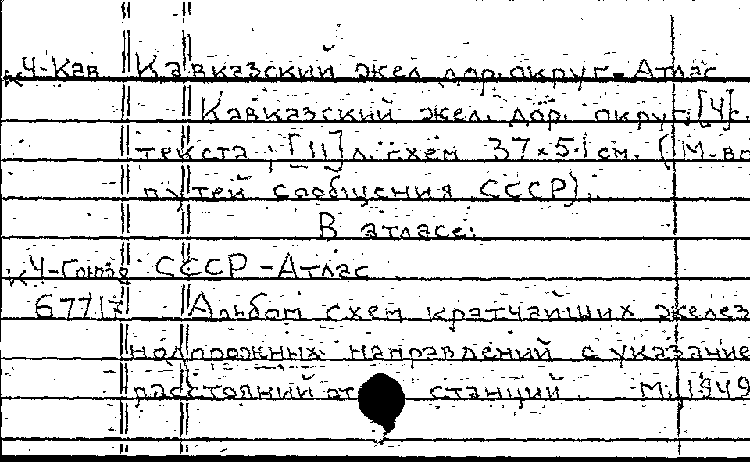 К4-Кав Кавказский жел. дор. округ - Атлас
Кавказский жел. дор. округ. [4] с.
текста; [11] л. схем 37×51 см. (М-во
путей сообщения СССР).
В атласе:
К4-Союз СССР - Атлас
67717 Альбом схем кратчайших желез
нодорожных направлений с указание
расстояний от станций. М., 1949